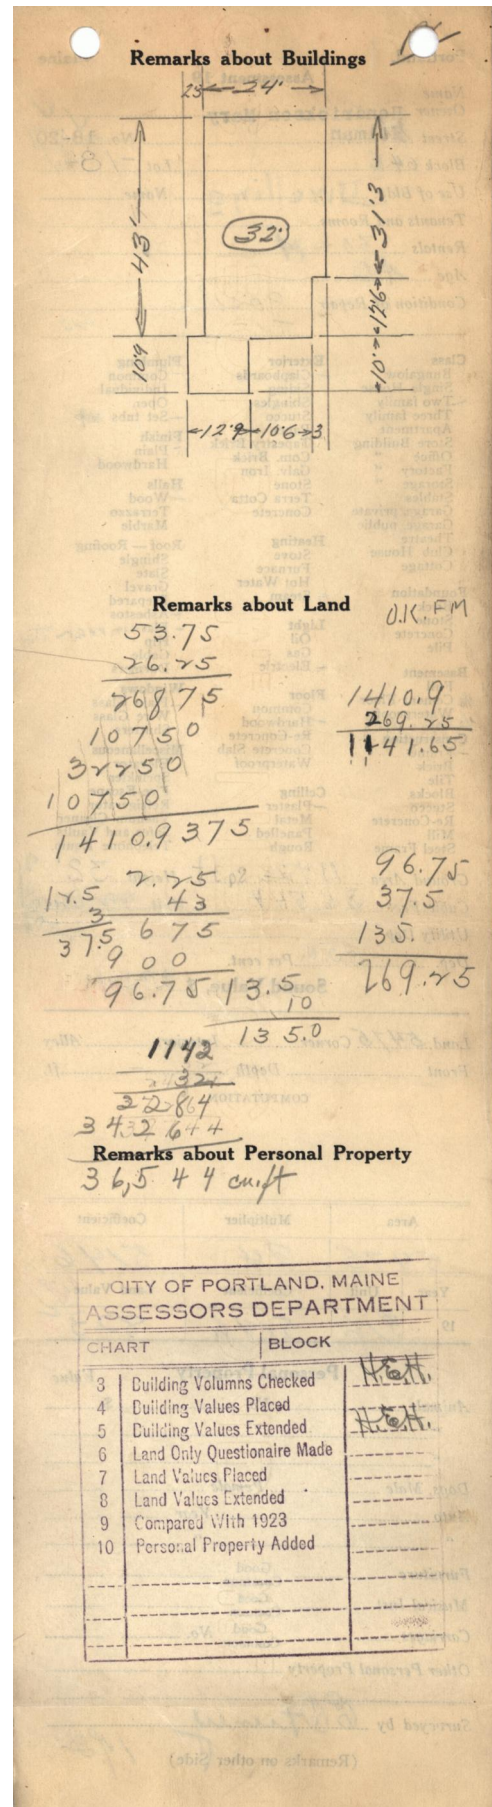 Remarks about Buildings
23 24'
32'
43'
31'3
17'6
10'
10'9
12'9 10'6 3
Remarks about Land
O.K. FM
53.75
26.25
26875
10750
32250
10750
1410.9375
1410.9
269.25
1141.65
2.25
43
675
900
96.75
12.5
3
37.5
13.5
10
135.0
96.75
37.5
135.
269.25
1142
32
2284
3426
Remarks about Personal Property
36,544 cu.ft
CITY OF PORTLAND, MAINE
ASSESSORS DEPARTMENT
CHART BLOCK
3 Building Volumns Checked H.E.H.
4 Building Values Placed
5 Building Values Extended H.E.H.
6 Land Only Questionaire Made
7 Land Values Placed
8 Land Values Extended
9 Compared With 1923
10 Personal Property Added